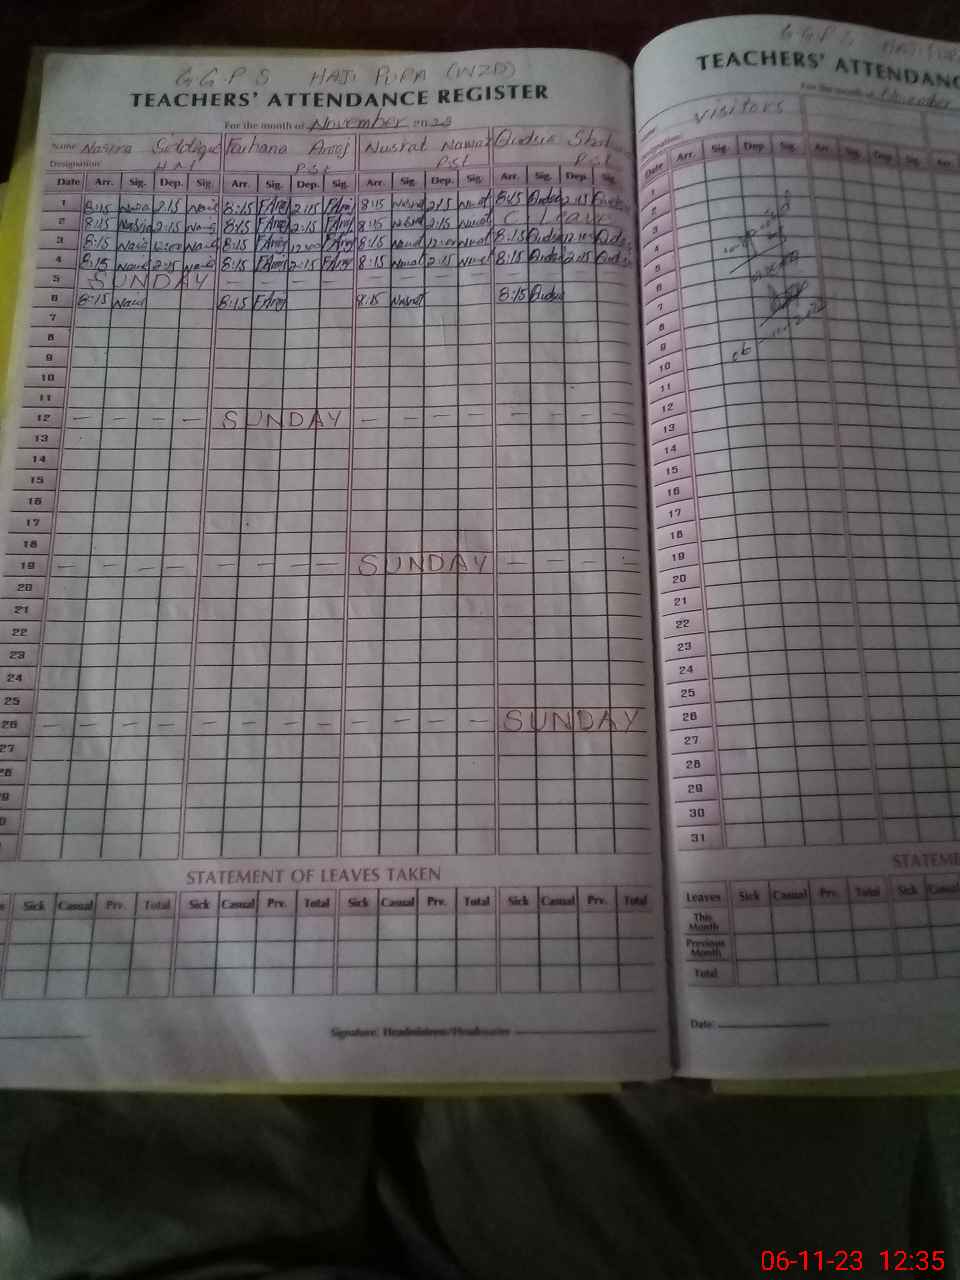 G.G.P.S HAJI PURA (WZD)
TEACHERS' ATTENDANCE REGISTER
For the month of November 2023
Name Nasira Siddique Farhana Arooj Nusrat Nawaz
Designation H.M P.S.T P.S.T P.S.T
Date Arr. Sig. Dep. Sig. Arr. Sig. Dep. Sig. Arr. Sig. Dep. Sig. Arr. Sig. Dep. Sig.
1 8:15 2:15 8:15 2:15 8:15 2:15 8:15 2:15
2 8:15 2:15 8:15 2:15 8:15 2:15 C. Leave
3 8:15 12:00 8:15 12:00 8:15 12:00 8:15 12:00
4 8:15 2:15 8:15 2:15 8:15 2:15 8:15 2:15
5 SUNDAY — — — — — — — — — — — —
6 8:15 8:15 8:15 Nusrat 8:15
7
8
9
10
11
12 — — — — SUNDAY — — — — — — — —
13
14
15
16
17
18
19 — — — — — — — — SUNDAY — — — —
20
21
22
23
24
25
26 — — — — — — — — — — — — SUNDAY
27
28
29
STATEMENT OF LEAVES TAKEN
Sick Casual Prv. Total Sick Casual Prv. Total Sick Casual Prv. Total Sick Casual Prv. Total
Signature: Headmistress/Headmaster
G.G.P.S
TEACHERS' ATTENDANC
For the month of November
Name Visitors
Designation
Date Arr. Sig. Dep. Sig. Arr. Sig. Dep. Sig. Arr.
1
2
3
4
5
6
7
8
9
10
11
12
13
14
15
16
17
18
19
20
21
22
23
24
25
26
27
28
29
30
31
STATEME
Leaves Sick Casual Prv. Total Sick Casual
This Month
Previous Month
Total
Date:
06-11-23 12:35